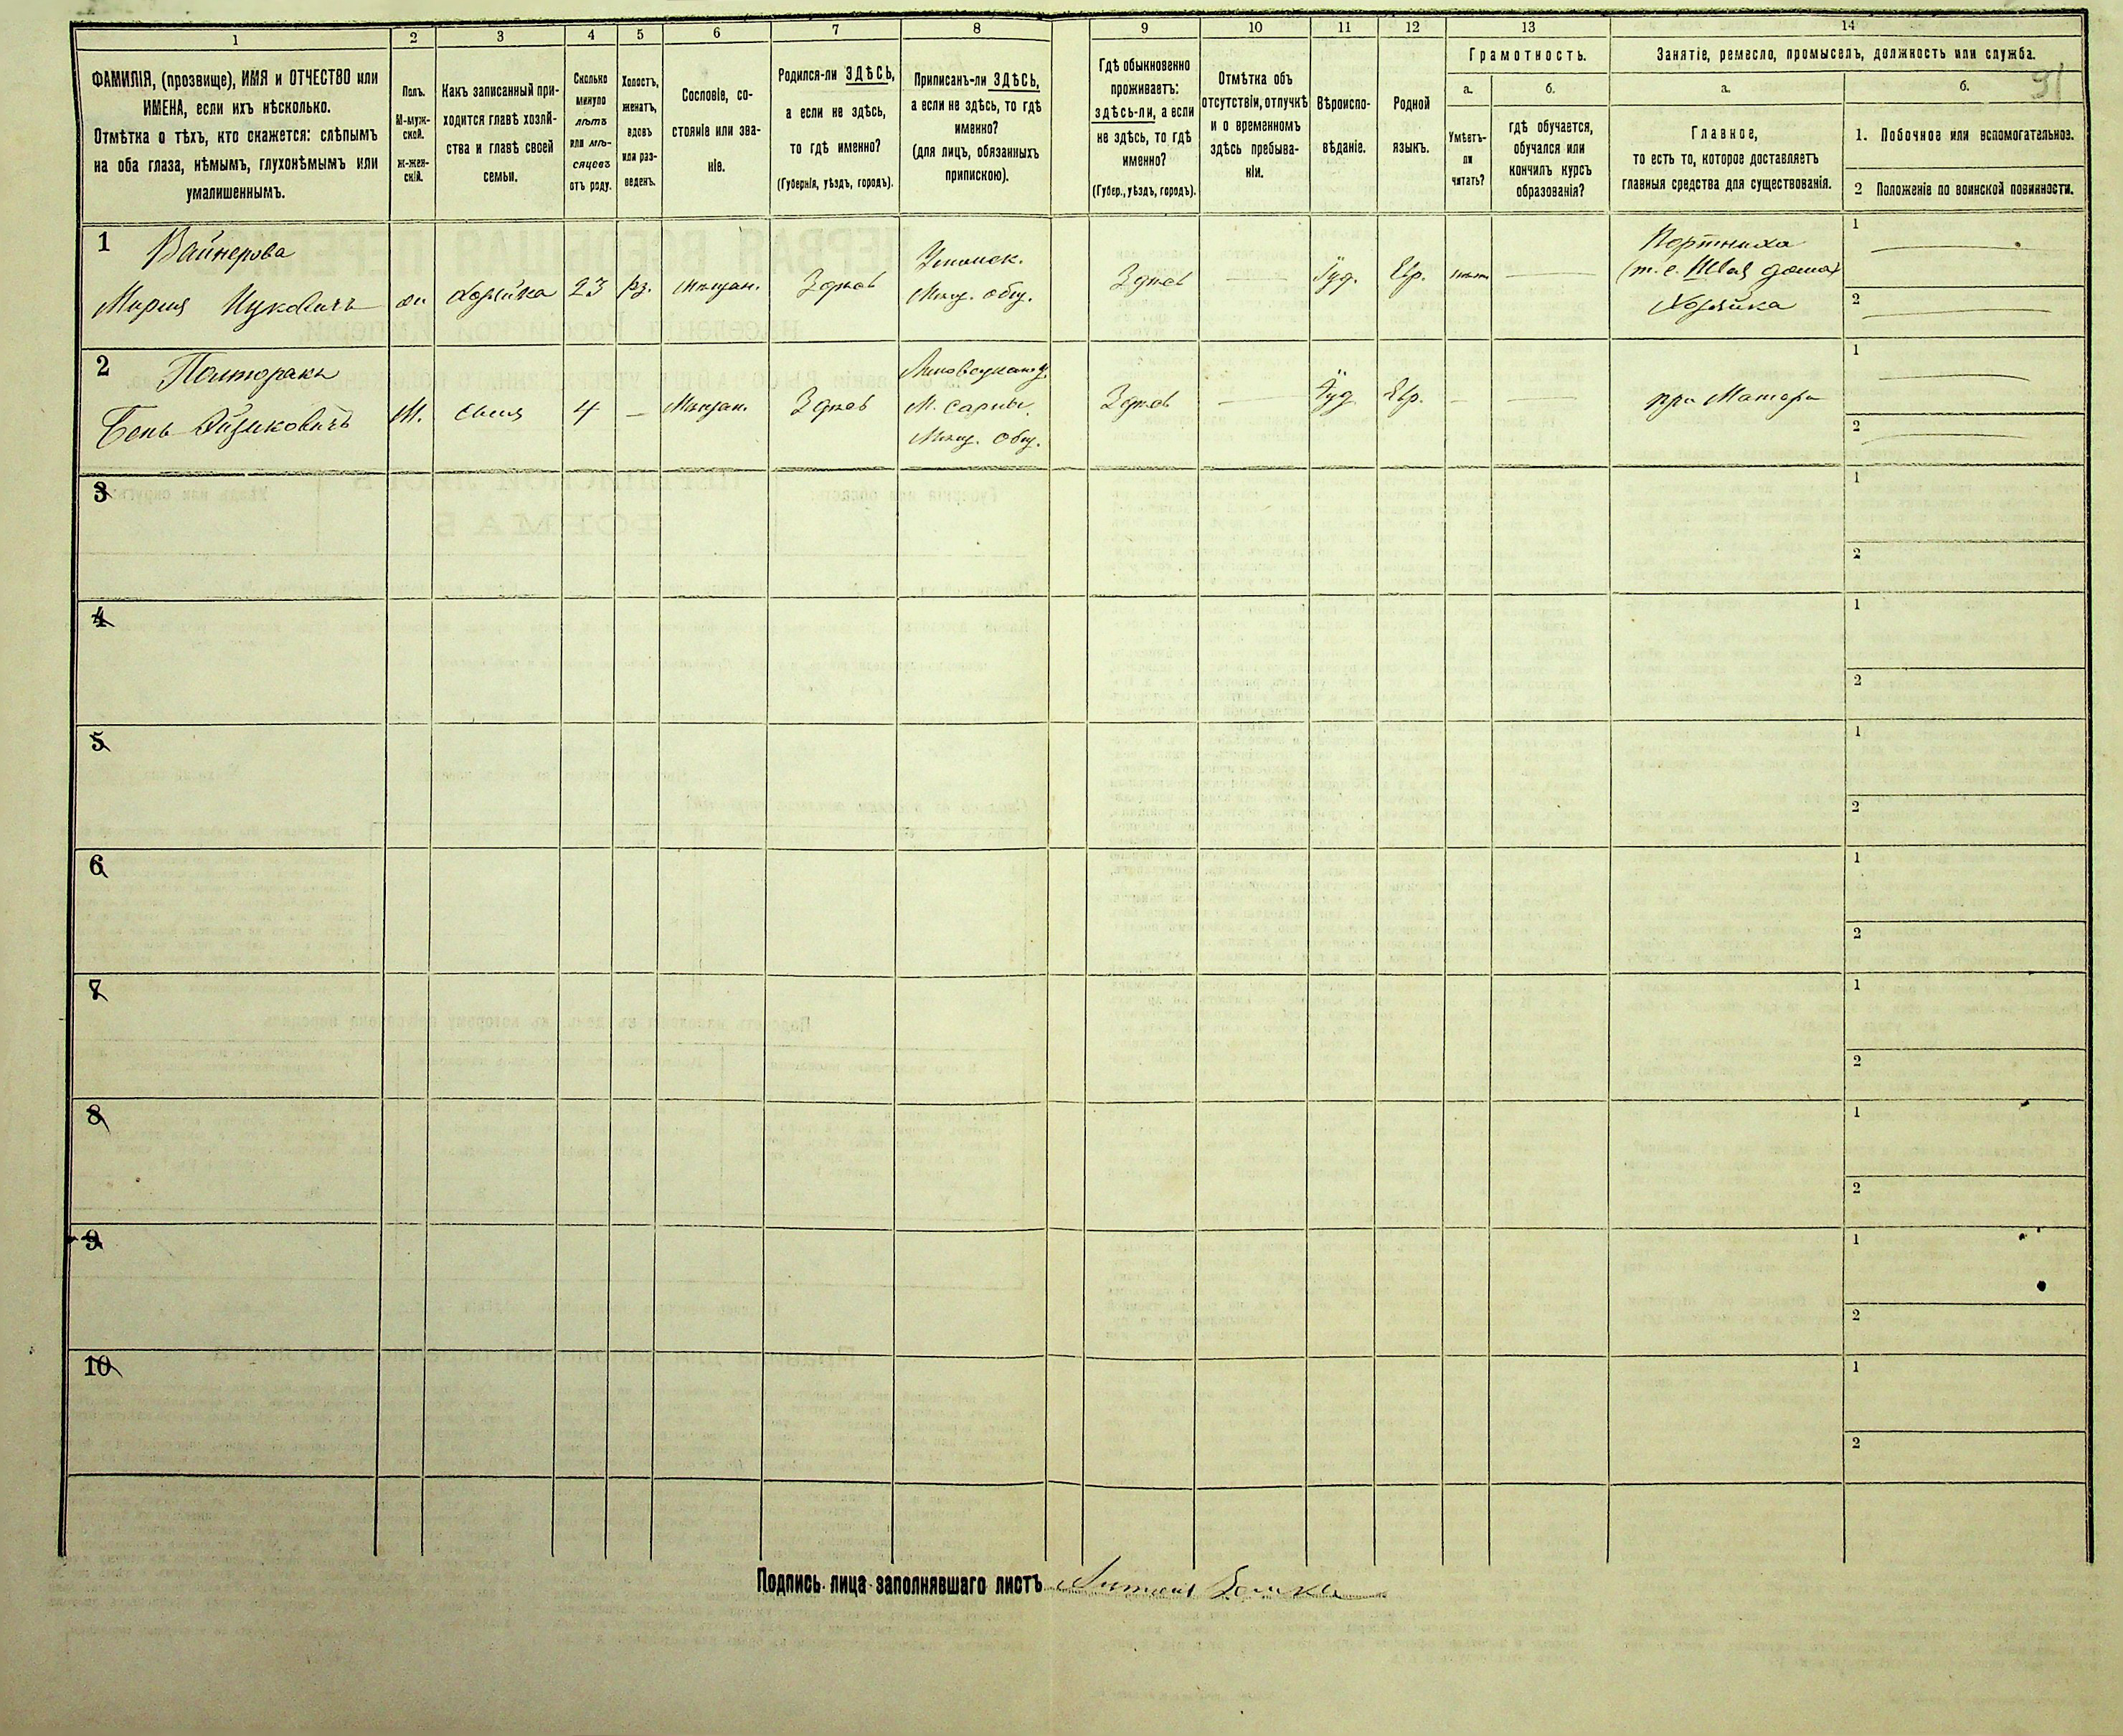 1 2 3 4 5 6 7 8 9 10 11 12 13 14
ФАМИЛІЯ, (прозвище), ИМЯ и ОТЧЕСТВО или
ИМЕНА, если ихъ нѣсколько.
Отмѣтка о тѣхъ, кто скажется: слѣпымъ
на оба глаза, нѣмымъ, глухонѣмымъ или
умалишеннымъ.
Полъ.
М-муж-
ской.
ж-жен-
скій.
Какъ записанный при-
ходится главѣ хозяй-
ства и главѣ своей
семьи.
Сколько
минуло
лѣтъ
или мѣ-
сяцевъ
отъ роду.
Холостъ,
женатъ,
вдовъ
или раз-
веденъ.
Сословіе, со-
стояніе или зва-
ніе.
Родился-ли ЗДѢСЬ,
а если не здѣсь,
то гдѣ именно?
(Губернія, уѣздъ, городъ).
Приписанъ-ли ЗДѢСЬ,
а если не здѣсь, то гдѣ
именно?
(для лицъ, обязанныхъ
припискою).
Гдѣ обыкновенно
проживаетъ:
здѣсь-ли, а если
не здѣсь, то гдѣ
именно?
(Губер., уѣздъ, городъ).
Отмѣтка объ
отсутствіи, отлучкѣ
и о временномъ
здѣсь пребыва-
ніи.
Вѣроиспо-
вѣданіе.
Родной
языкъ.
Грамотность.
а.
Умѣетъ-
ли
читать?
б.
гдѣ обучается,
обучался или
кончилъ курсъ
образованія?
Занятіе, ремесло, промыселъ, должность или служба.
а.
Главное,
то есть то, которое доставляетъ
главныя средства для существованія.
б.
91
1. Побочное или вспомогательное.
2 Положеніе по воинской повинности.
1 Вайнерова
Мария Ицковичъ
ж
хозяйка
23
рз.
мѣщан.
Здѣсь
Уманск.
Мѣщ. общ.
Здѣсь
—
Іуд.
Евр.
нѣтъ
—
Портниха
(т. е. Швая дома)
Хозяйка
1 —
2 —
2 Полторакъ
Бень Айзиковичъ
М.
сынъ
4
—
Мѣщан.
Здѣсь
Липовецкаго у.
М. Сарны
Мѣщ. общ.
Здѣсь
—
Іуд
Евр.
—
—
при Матери
1 —
2 —
3
1
2
4
1
2
5
1
2
6
1
2
7
1
2
8
1
2
9
1
2
10
1
2
Подпись лица заполнявшаго листъ